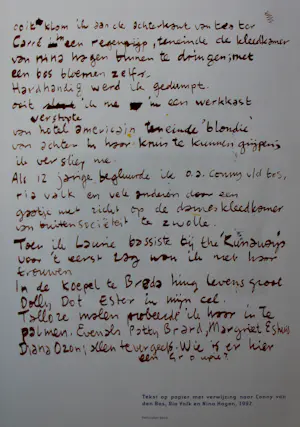 ooit klom ik aan de achterkant van theater
Carré een regenpijp, teneinde de kleedkamer
van nina hagen binnen te dringen, met
een bos bloemen zelfs.
Hardhandig werd ik gedumpt.
ooit ik me in een werkkast
verstopte
van hotel americain teneinde 'blondie'
van achter in haar kruis te kunnen grijpen
ik versliep me.
Als 12 jarige begluurde ik o.a. conny vd bos,
ria valk en vele anderen door een
gaatje met zicht op de dameskleedkamer
van buitensocieteit te zwolle.
Toen ik Laurie bassiste bij the Runaways
voor 't eerst zag wou ik met haar
trouwen
In de koepel te Breda hing levensgroot
Dolly Dot Ester in mijn cel.
Talloze malen probeerde ik haar in te
palmen. Evenals Patty Brard, Margriet Eshuijs
Diana Ozon; allen tevergeefs. Wie is er hier
een Groupie?
Tekst op papier met verwijzing naar Conny van
den Bos, Ria Valk en Nina Hagen, 1987